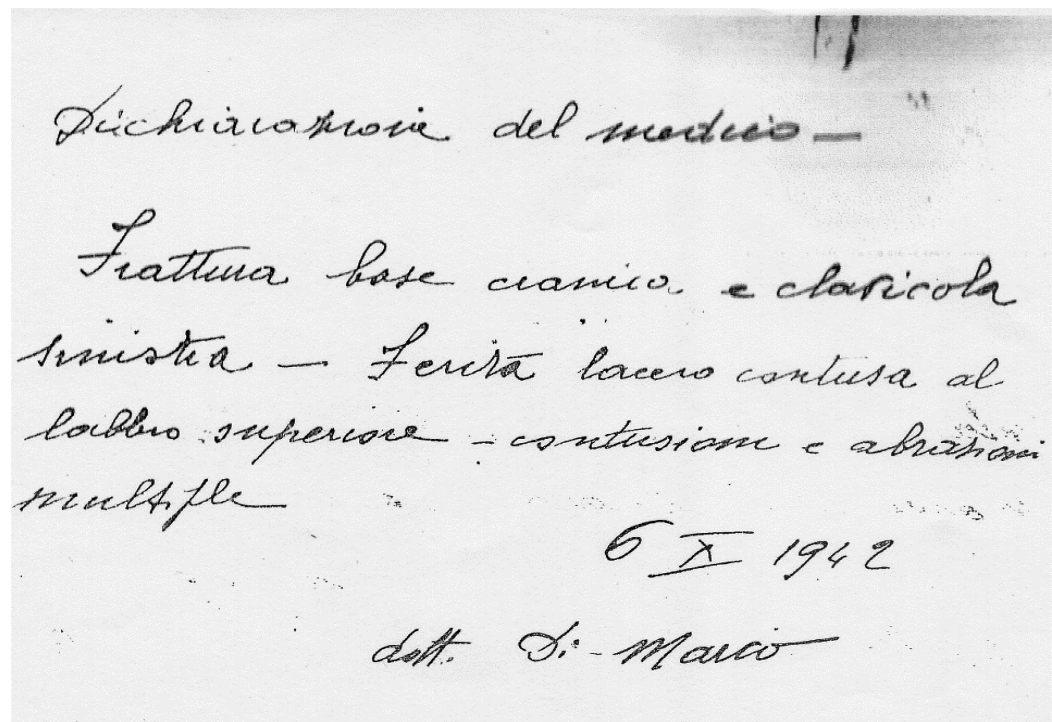 Dichiarazione del medico —
Frattura base cranica e clavicola
sinistra — Ferita lacero contusa al
labbro superiore - contusioni e abrasioni
multiple
6 X 1942
dott. Di Marco